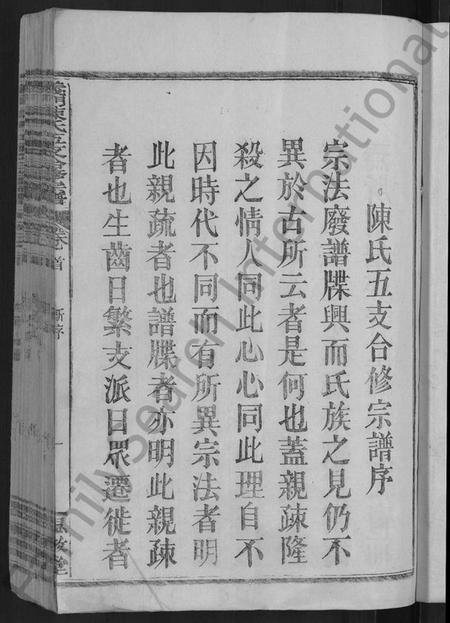 陳氏五支合修宗譜序
宗法廢譜牒興而氏族之見仍不
異於古所云者是何也蓋親疎隆
殺之情人同此心心同此理自不
因時代不同而有所異宗法者明
此親疏者也譜牒者亦明此親疎
者也生齒日繁支派日眾遷徙者
陳氏五支 譜 卷首 新序 一 堂
FamilySearch International